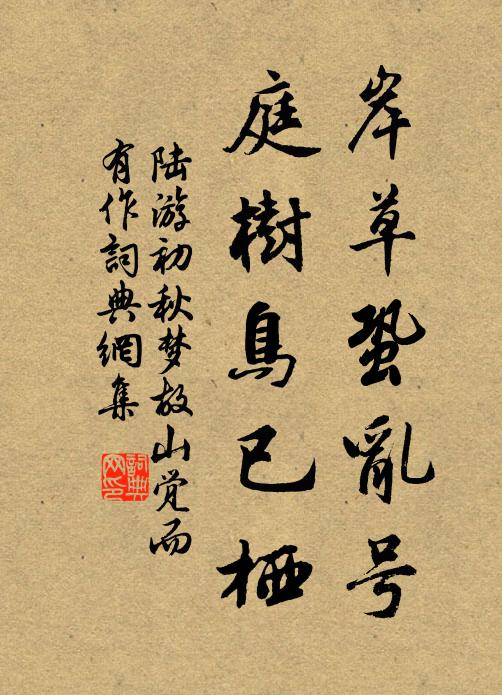 岸草蛩亂号
庭樹鳥已栖
陆游初秋梦故山觉而
有作詞典網集
詞典
网印